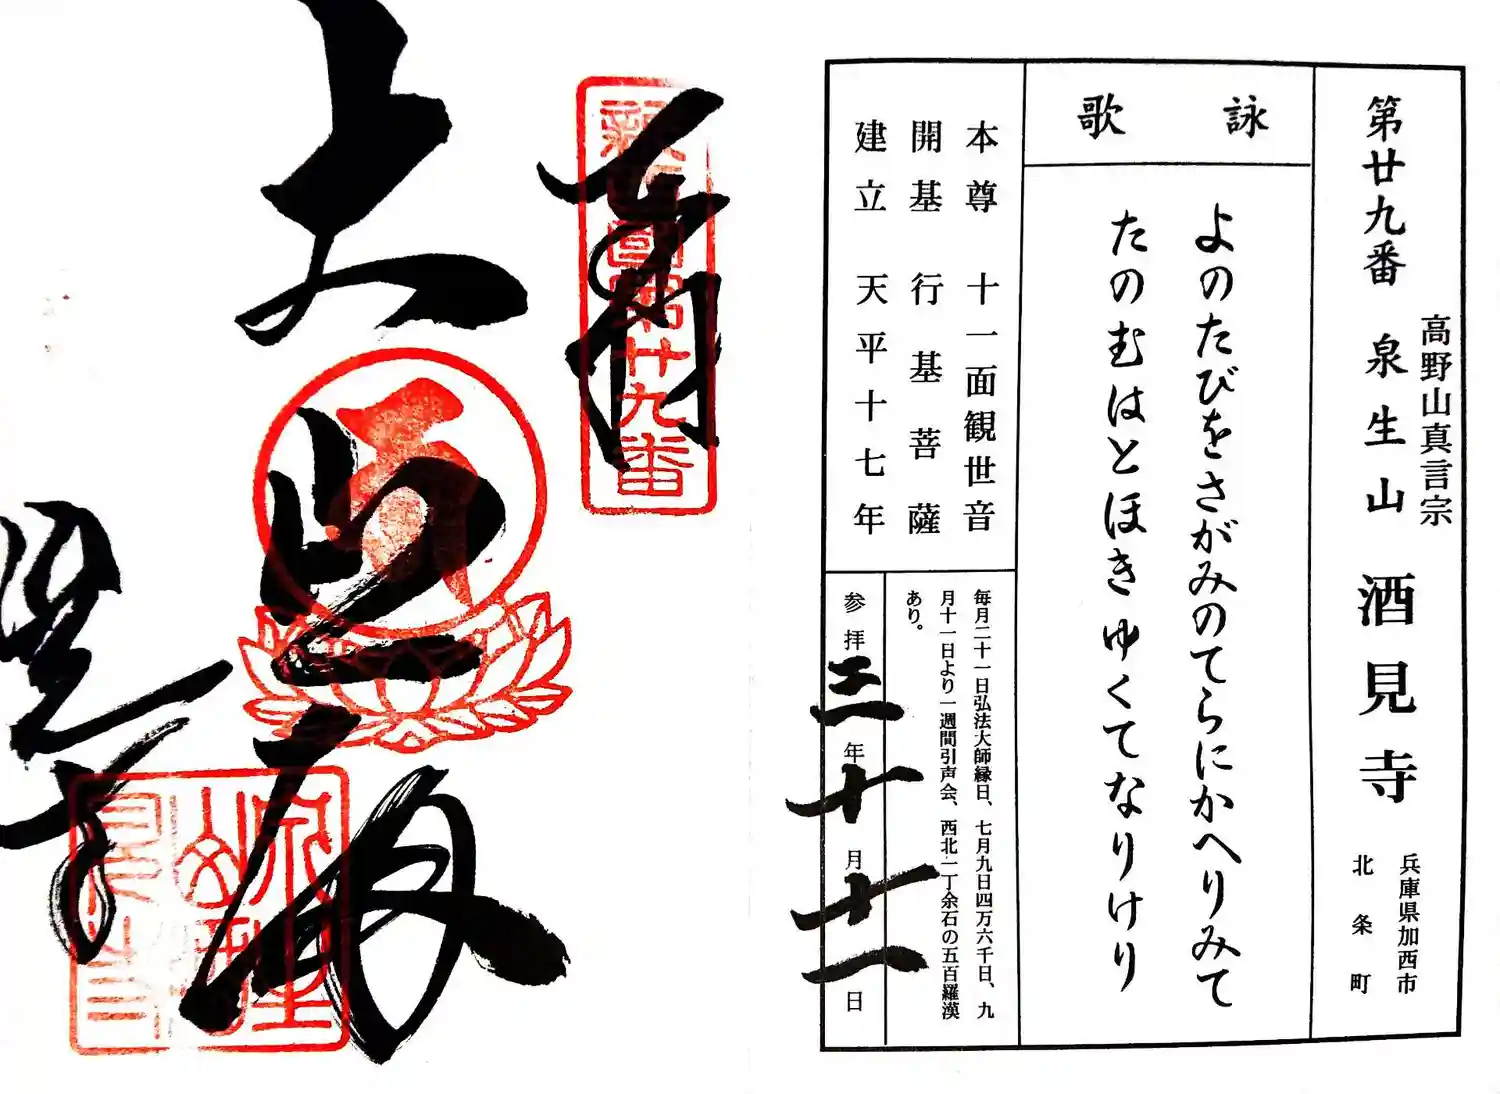 第廿九番 泉生山 酒見寺
高野山真言宗
兵庫県加西市
北条町
詠歌
よのたびをさがみのてらにかへりみて
たのむはとほきゆくてなりけり
本尊 十一面観世音
開基 行基菩薩
建立 天平十七年
毎月二十一日弘法大師縁日、七月九日四万六千日、九
月十一日より一週間引声会、西北一丁余石の五百羅漢
あり。
参拝 三年十月十一日
奉拝
新西國第廿九番
大悲殿
酒見寺
泉生山